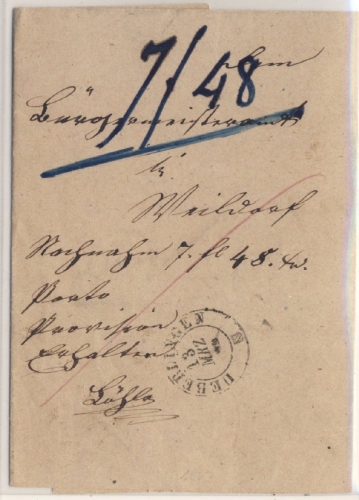 7/48
dem
Bürgermeisteramt
in
Weildorf
Nachnahm 7. fl 48. kr.
Porto
Provision
Erhalten
Löhle
UEBERLINGEN
13
MRZ